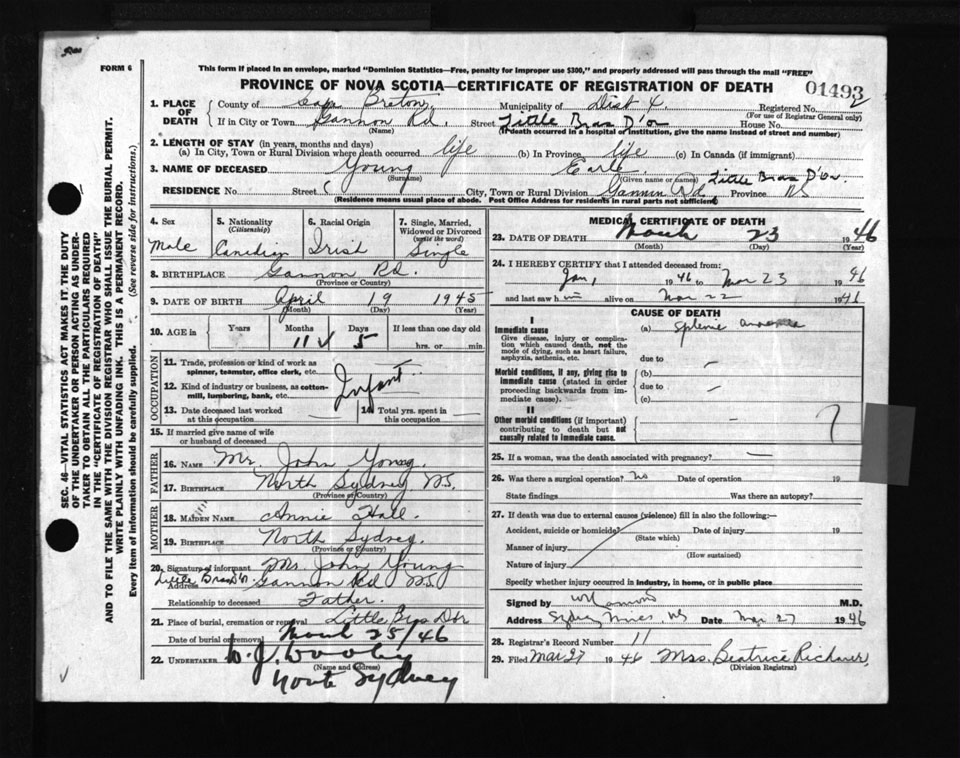 FORM 6
This form if placed in an envelope, marked "Dominion Statistics—Free, penalty for improper use $300," and properly addressed will pass through the mail "FREE"
PROVINCE OF NOVA SCOTIA—CERTIFICATE OF REGISTRATION OF DEATH
01493
2
1. PLACE OF DEATH
County of Cape Breton Municipality of Dist 4. Registered No.
(For use of Registrar General only)
If in City or Town Gannon Rd. Street Little Bras D'or House No.
(Name) (If death occurred in a hospital or institution, give the name instead of street and number)
2. LENGTH OF STAY (in years, months and days)
(a) In City, Town or Rural Division where death occurred life (b) In Province life (c) In Canada (if immigrant)
3. NAME OF DECEASED Young Earl
(Surname) (Given name or names) Little Bras D'Or.
RESIDENCE No. Street City, Town or Rural Division Gannon Rd, Province NS
(Residence means usual place of abode. Post Office Address for residents in rural parts not sufficient)
4. Sex
Male
5. Nationality
(Citizenship)
Canadian
6. Racial Origin
Irish
7. Single, Married, Widowed or Divorced
(write the word)
Single
8. BIRTHPLACE Gannon Rd.
(Province or Country)
9. DATE OF BIRTH April 19 1945
(Month) (Day) (Year)
10. AGE in Years Months Days If less than one day old
11 5 hrs. or min.
OCCUPATION
11. Trade, profession or kind of work as spinner, teamster, office clerk, etc.
Infant
12. Kind of industry or business, as cotton-mill, lumbering, bank, etc.
13. Date deceased last worked at this occupation
14. Total yrs. spent in this occupation
15. If married give name of wife or husband of deceased
FATHER
16. NAME Mr. John Young.
17. BIRTHPLACE North Sydney NS.
(Province or Country)
MOTHER
18. MAIDEN NAME Annie Hall.
19. BIRTHPLACE North Sydney.
(Province or Country)
20. Signature of informant Mr. John Young
Little Bras D'Or
Address Gannon Rd NS.
Relationship to deceased Father.
21. Place of burial, cremation or removal Little Bras D'or
Date of burial or removal March 25/46
22. UNDERTAKER W. J. Dooley
(Name and address)
North Sydney
MEDICAL CERTIFICATE OF DEATH
23. DATE OF DEATH March 23 1946
(Month) (Day) (Year)
24. I HEREBY CERTIFY that I attended deceased from:
Jan, 1946 to Mar 23 1946
and last saw him alive on Mar 22 1946
CAUSE OF DEATH
I
Immediate cause
Give disease, injury or complication which caused death, not the mode of dying, such as heart failure, asphyxia, asthenia, etc.
(a) Splenic anaemia
due to
Morbid conditions, if any, giving rise to immediate cause (stated in order proceeding backwards from immediate cause).
(b)
due to
(c)
II
Other morbid conditions (if important) contributing to death but not causally related to immediate cause.
25. If a woman, was the death associated with pregnancy?
26. Was there a surgical operation? No Date of operation 19
State findings Was there an autopsy?
27. If death was due to external causes (violence) fill in also the following:—
Accident, suicide or homicide? Date of injury 19
(State which)
Manner of injury
(How sustained)
Nature of injury
Specify whether injury occurred in industry, in home, or in public place
Signed by M.D.
Address Sydney Mines, NS Date Mar 27 1946
28. Registrar's Record Number 11
29. Filed Mar 27 1946 Mrs. Beatrice
(Division Registrar)
SEC. 46—VITAL STATISTICS ACT MAKES IT THE DUTY
OF THE UNDERTAKER OR PERSON ACTING AS UNDER-
TAKER TO OBTAIN ALL THE PARTICULARS REQUIRED
IN THE "CERTIFICATE OF REGISTRATION OF DEATH"
AND TO FILE THE SAME WITH THE DIVISION REGISTRAR WHO SHALL ISSUE THE BURIAL PERMIT.
WRITE PLAINLY WITH UNFADING INK. THIS IS A PERMANENT RECORD.
Every item of information should be carefully supplied. (See reverse side for instructions.)